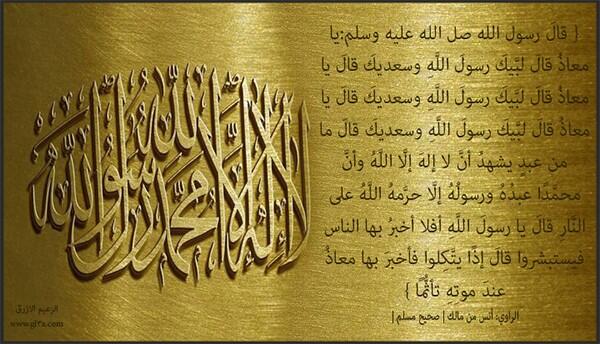 { قالَ رسول الله صل الله عليه وسلم:يا
معاذُ قالَ لبَّيكَ رسولَ اللَّهِ وسعديكَ قالَ يا
معاذُ قالَ لبَّيكَ رسولَ اللَّهِ وسعديكَ قالَ يا
معاذُ قالَ لبَّيكَ رسولَ اللَّهِ وسعديكَ قالَ ما
من عبدٍ يشهدُ أنَّ لا إلهَ إلَّا اللَّهُ وأنَّ
محمَّدًا عبدُهُ ورسولُهُ إلَّا حرَّمهُ اللَّهُ على
النَّارِ قالَ يا رسولَ اللَّه أفلا أخبرُ بها الناس
فيستبشروا قال إذًا يتَّكِلوا فأخبَرَ بها معاذٌ
عندَ موتِه تأثُّمًا }
الراوي: أنس من مالك | صحيح مسلم |
لا إله إلا الله محمد رسول الله
الزعيم الازرق
www.gl3a.com